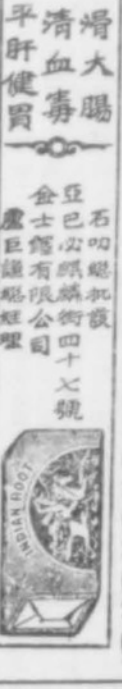 滑大腸
清血毒
平肝健胃
石叻總批發
亞巴必麒麟街四十七號
金士鏗有限公司
盧巨謙總經理
INDIAN ROOT